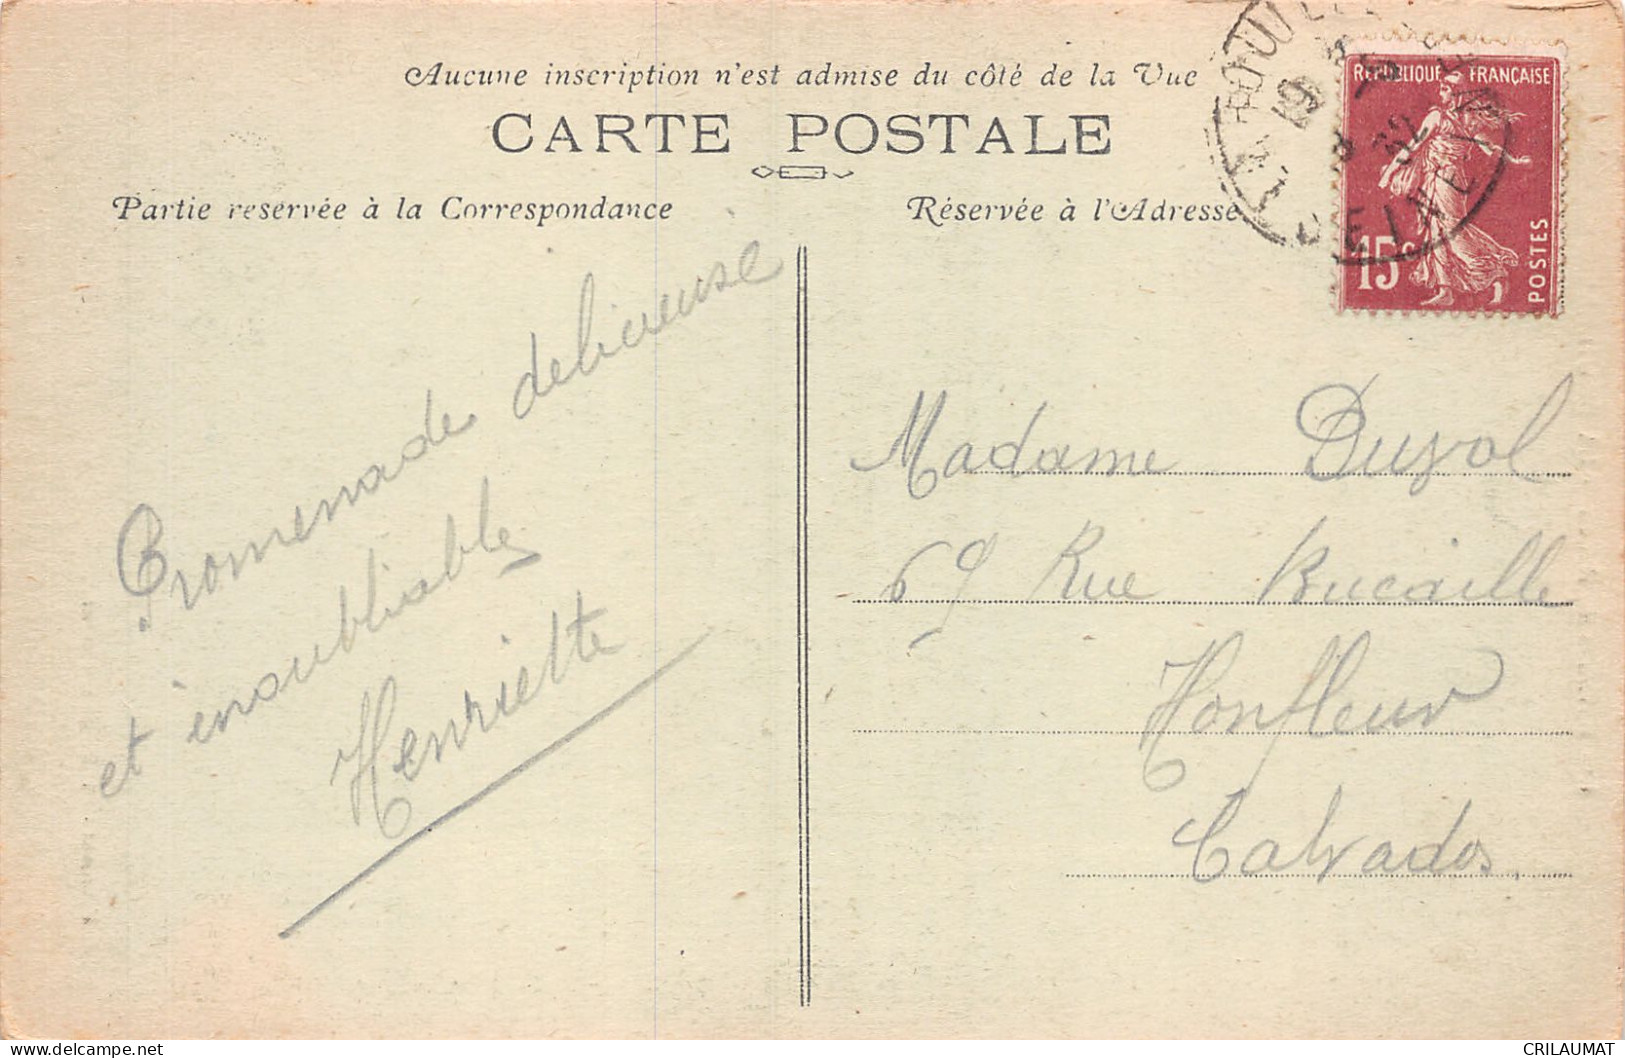 Aucune inscription n'est admise du côté de la Vue
CARTE POSTALE
Partie reservée à la Correspondance
Réservée à l'Adresse
REPUBLIQUE FRANÇAISE
15c
POSTES
Promenade delicieuse
et innoubliable
Henriette
Madame Duval
69 Rue Bucaille
Honfleur
Calvados
CRILAUMAT